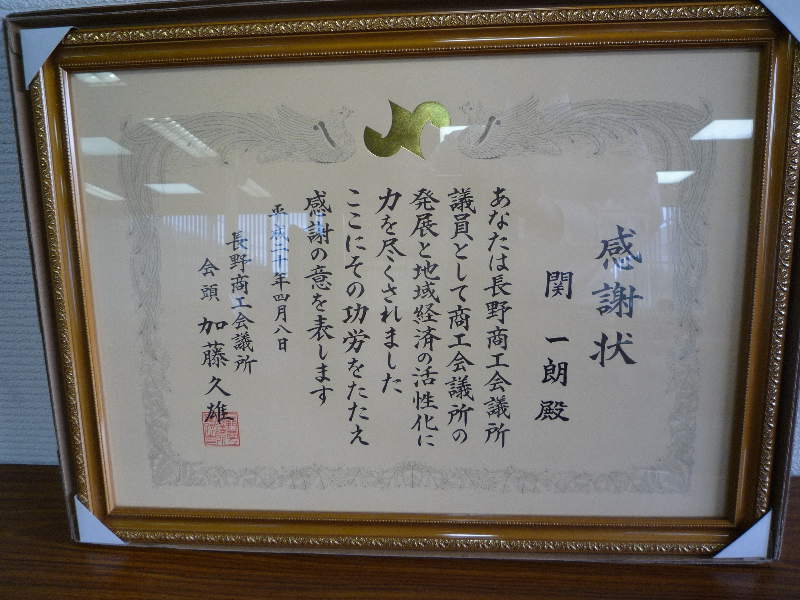 感謝状
関 一朗 殿
あなたは長野商工会議所
議員として商工会議所の
発展と地域経済の活性化に
力を尽くされました
ここにその功労をたたえ
感謝の意を表します
平成二十年四月八日
長野商工会議所
会頭 加藤久雄